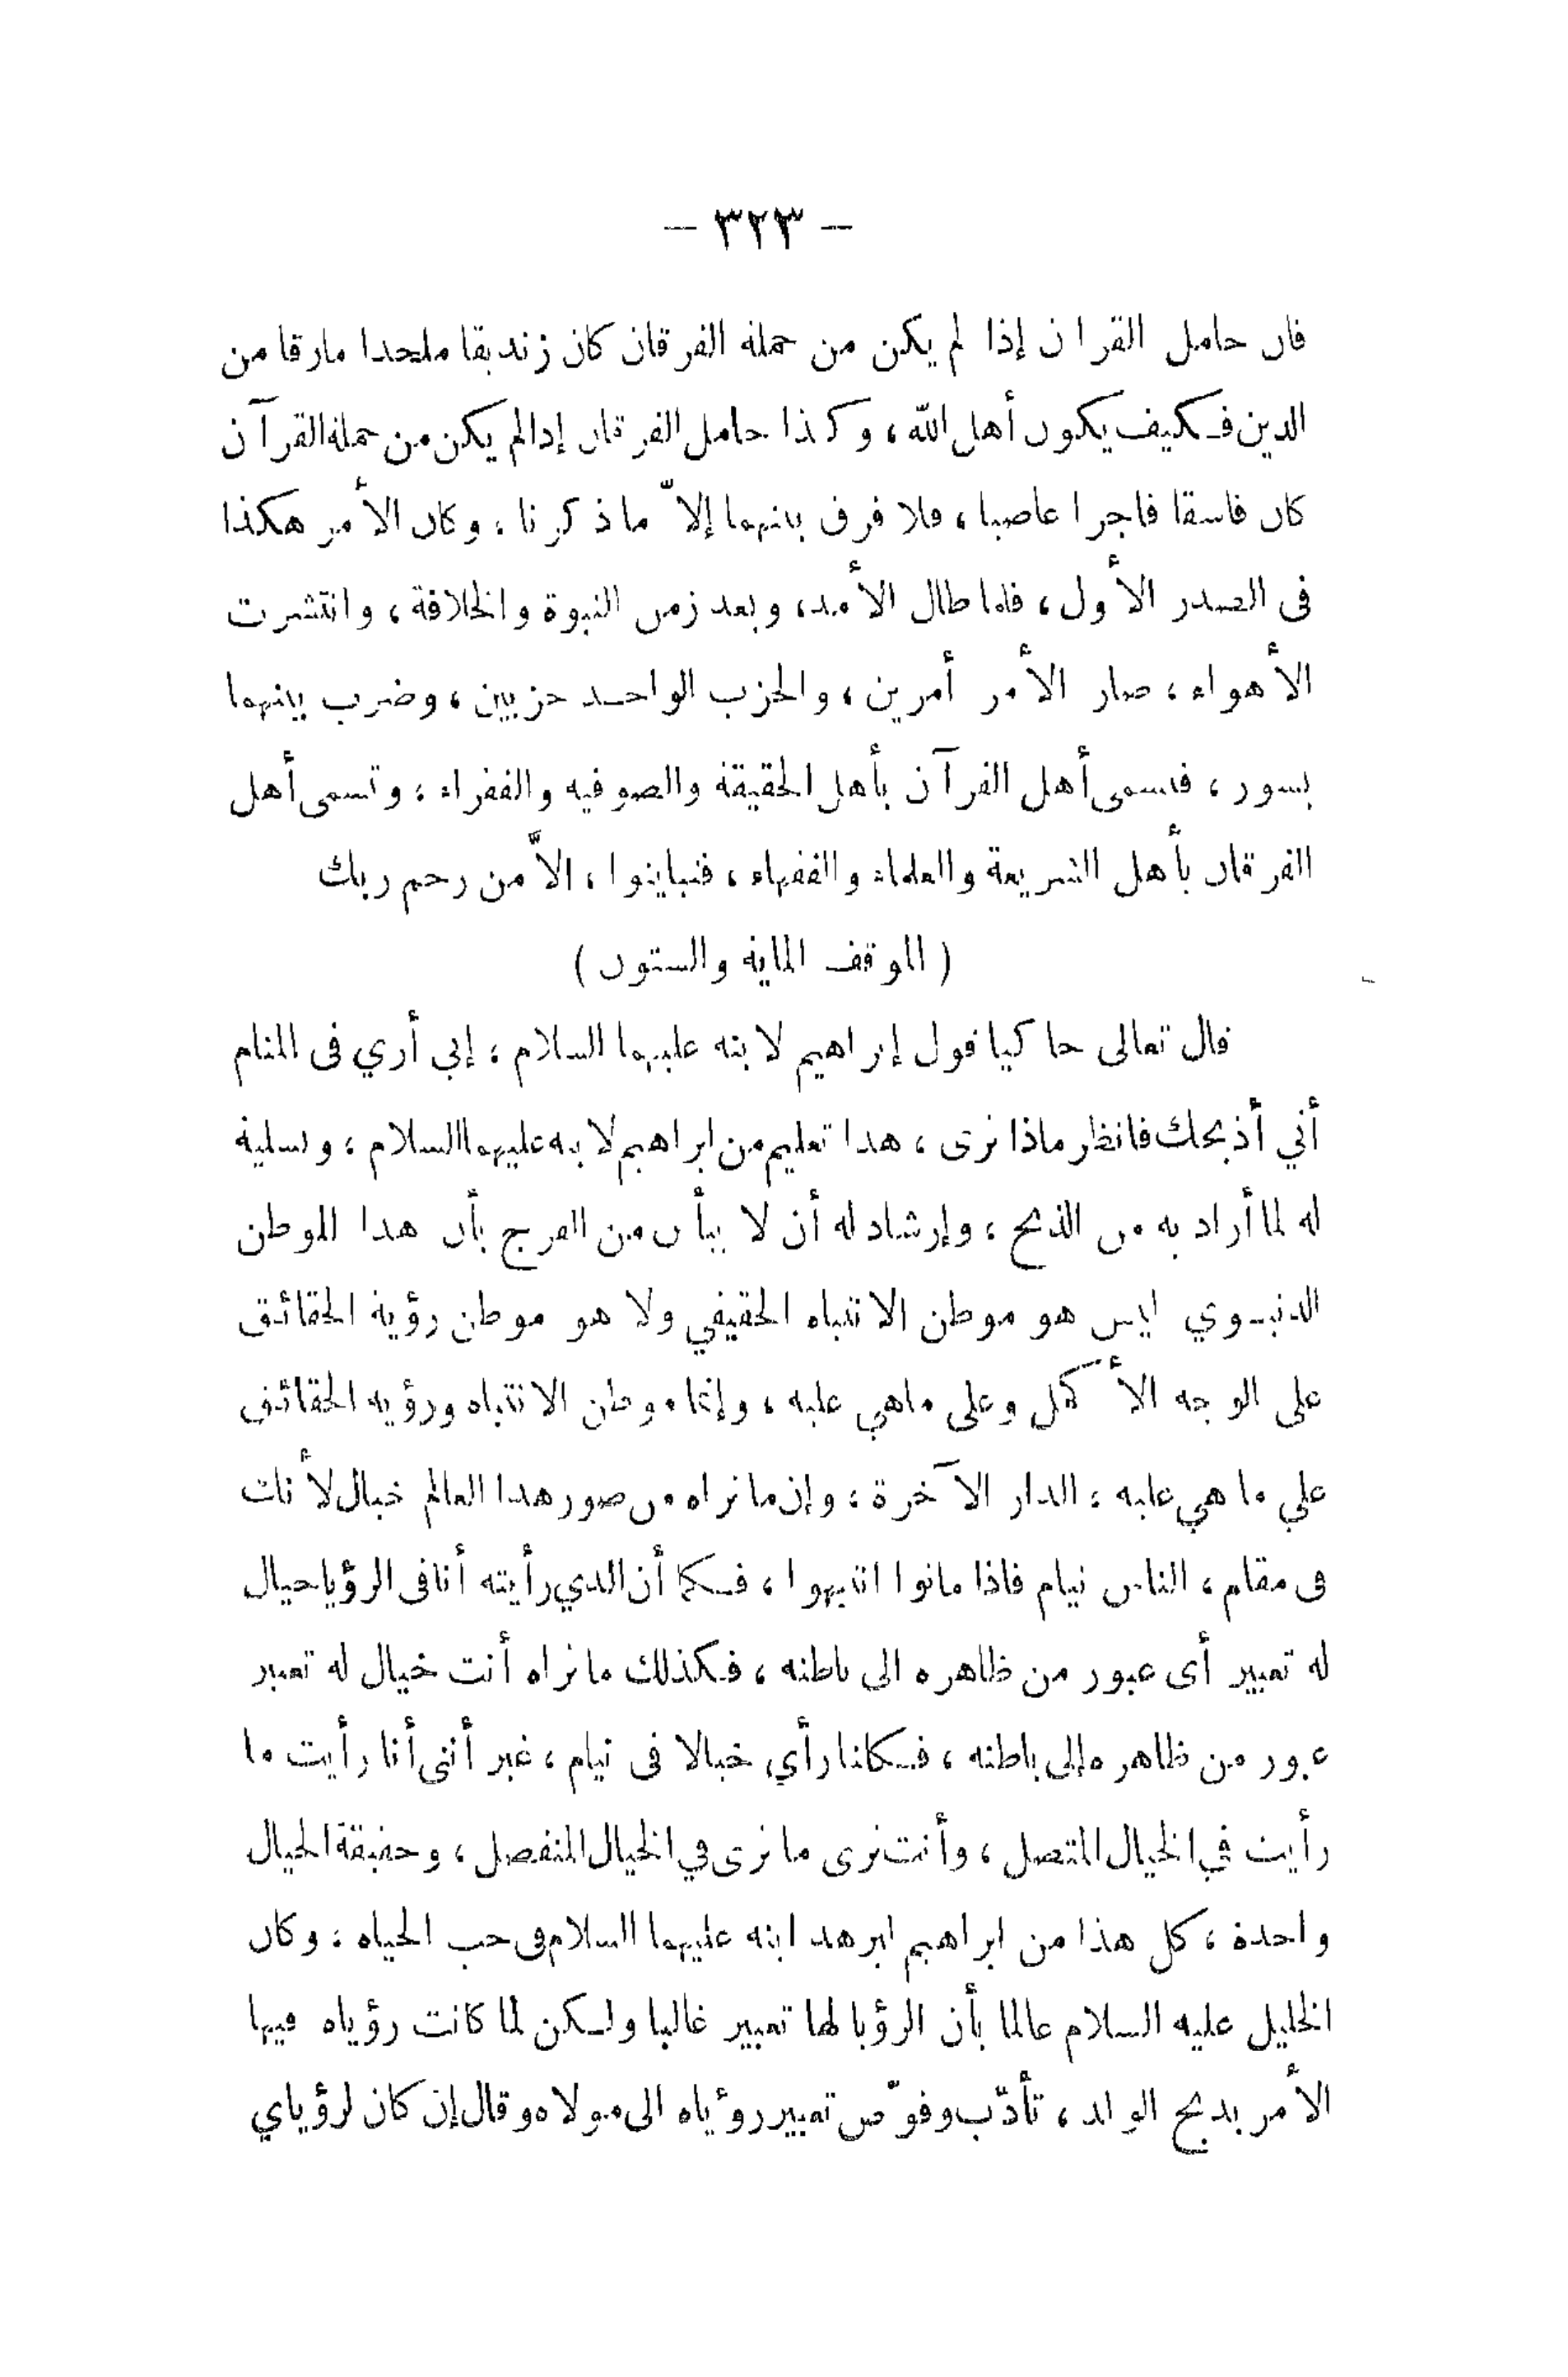 – ٣٢٣ –
فان حامل القرا ن إذا لم يكن من حملة الفرقان كان زنديقا ملحدا مارقا من
الدين فكيف يكون أهل الله، وكذا حامل الفرقان إذا لم يكن من حملة القرآن
كان فاسقا فاجرا عاصيا، فلا فرق بينهما إلاّ ما ذكرنا، وكان الأمر هكذا
فى الصدر الأول، فلما طال الأمد، وبعد زمن النبوة والخلافة، وانتشرت
الأهواء، صار الأمر أمرين، والحزب الواحد حزبين، وضرب بينهما
بسور، فتسمى أهل القرآن بأهل الحقيقة والصوفية والفقراء، وتسمى أهل
الفرقان بأهل الشريعة والعلماء والفقهاء، فتباينوا، الاّ من رحم ربك
( الموقف الماية والستون )
قال تعالى حاكيا قول إبراهيم لابنه عليهما السلام، إني أري فى المنام
أني أذبحك فانظر ماذا ترى، هذا تعليم من ابراهيم لابنه عليهما السلام، وتسلية
له لما أراد به من الذبح، وإرشاد له أن لا ييأس من الفرج بأن هذا الموطن
الدنيوي ليس هو موطن الانتباه الحقيقي ولا هو موطن رؤية الحقائق
على الوجه الأكمل وعلى ماهي عليه، وإنما موطن الانتباه ورؤية الحقائق
علي ما هي عليه، الدار الآخرة، وإن ما نراه من صور هذا العالم خيال لأنك
فى مقام، الناس نيام فاذا ماتوا انتبهوا، فكما أن الذي رأيته أنا فى الرؤيا خيال
له تعبير أى عبور من ظاهره الى باطنه، فكذلك ما تراه أنت خيال له تعبير
عبور من ظاهره إلى باطنه، فكلنا رأي خيالا فى نيام، غير أننى أنا رأيت ما
رأيت في الخيال المتصل، وأنت ترى ما ترى في الخيال المنفصل، وحقيقة الخيال
واحدة، كل هذا من ابراهيم ليزهد ابنه عليهما السلام فى حب الحياه، وكان
الخليل عليه السلام عالما بأن الرؤيا لها تعبير غالبا ولكن لما كانت رؤياه فيها
الأمر بذبح الولد، تأدّب وفوّض تعبير روؤياه الى مولاه وقال إن كان لرؤياي